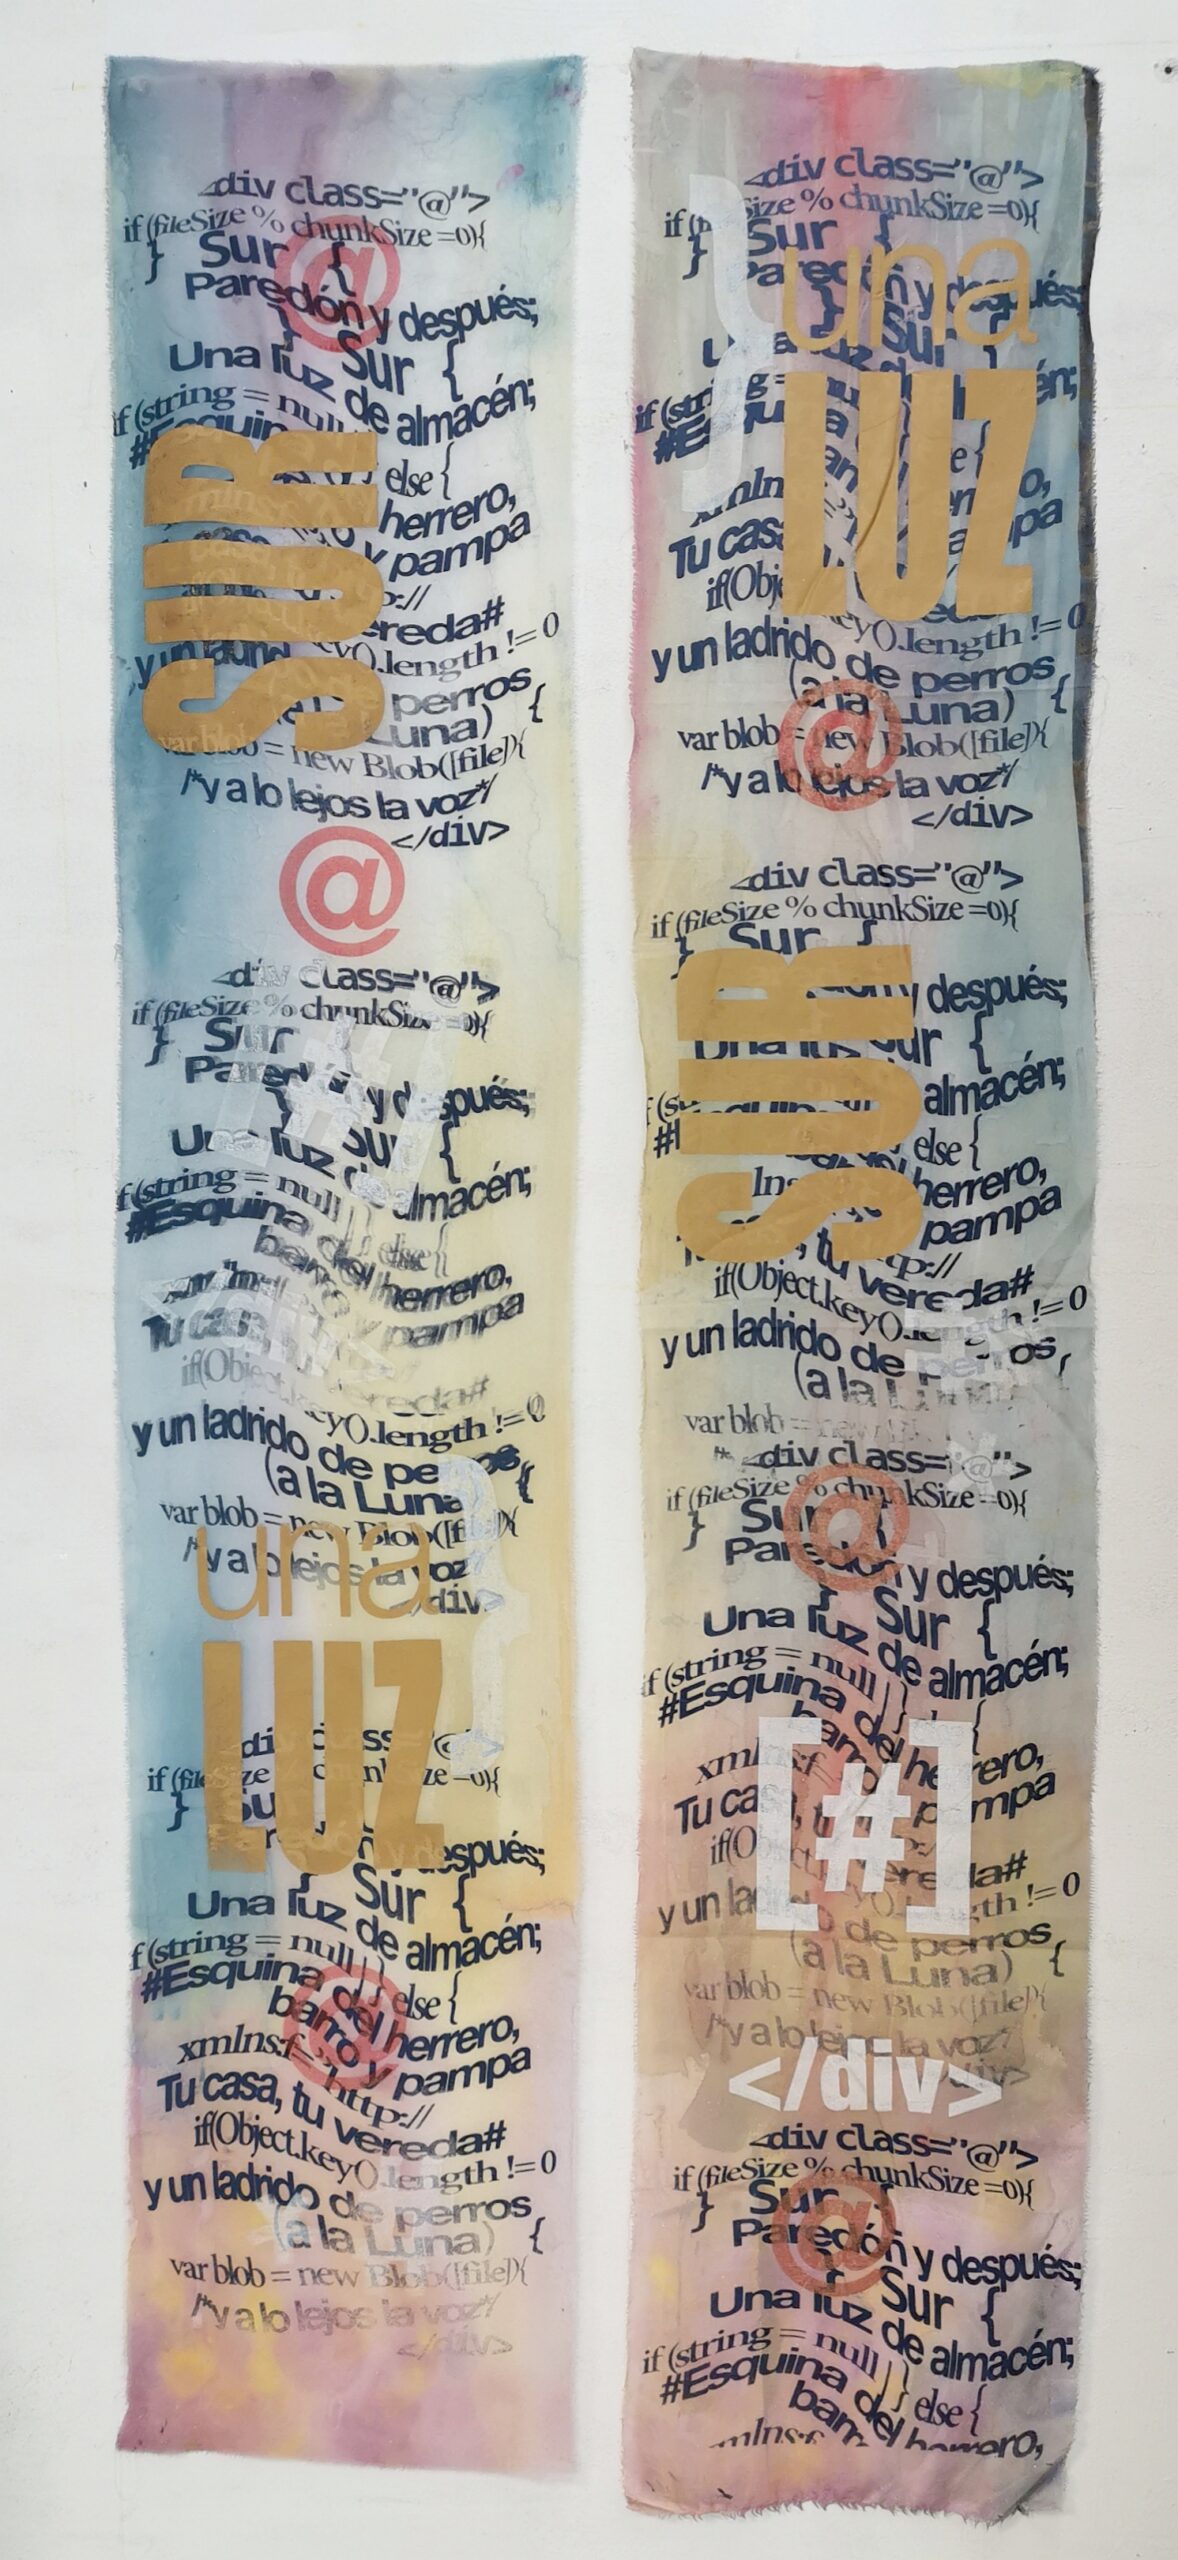 <div class="@">
if (fileSize % chunkSize =0){
} Sur {
@
Paredón y después;
} Sur {
Una luz de almacén;
if (string = null
#Esquin
SUR
else {
herrero,
y pampa
vereda#
y un ladrid
ey().length != 0
perros
Luna) {
var blob = new Blob([file]){
/*y a lo lejos la voz*/
</div>
@
<div class="@">
if (fileSize % chunkSize =0){
} Sur
Paredón y después;
} Sur {
Una luz de almacén;
f (string = null } } else {
#Esquina del herrero,
barro
xmlns
Tu casa, pampa
if(Object
vereda#
y un ladrido de perros
ey().length != 0
(a la Luna) {
var blob = new Blob([file]){
una
/*y a lo lejos la voz
</div>
LUZ
div class="@">
if (fileSize chunkSize =0){
} Sur
Paredón y después;
} Sur {
Una luz de almacén;
f (string = null } } else {
#Esquina del herrero,
@
barro y pampa
xmlns:f="http://
Tu casa, tu vereda#
if(Object.key().length != 0
y un ladrido de perros
(a la Luna) {
var blob = new Blob([file]){
/*y a lo lejos la voz*/
</div>
<div class="@">
if (fileSize % chunkSize =0){
} Sur {
una
Paredón y después;
} Sur }
Una luz de almacén;
LUZ
if (string =
#Esquina
e {
xmln
Tu casa pampa
if(Obj
key().length != 0
y un ladrido de perros
(a la Luna) {
@
var blob = new Blob([file]){
/*y a lo lejos la voz*/
</div>
<div class="@">
if (fileSize % chunkSize =0){
} Sur }
SUR
y después;
Una luz Sur {
almacén;
else {
herrero,
pampa
tu vereda#
http://
if(Object.key().length != 0
y un ladrido de perros
(a la Luna
var blob = new
<div class="@">
if (fileSize % chunkSize =0){
} Sur {
@
Paredón y después;
} Sur {
Una luz de almacén;
if (string = null } }
#Esquina del herrero,
barro
[#]
xmlns:f=
Tu casa, tu pampa
if(Ob
vereda#
y un ladrido de perros
key().length != 0
(a la Luna) {
var blob = new Blob([file]){
/*y a lo lejos la voz*/
</div>
</div>
<div class="@">
if (fileSize % chunkSize =0){
} Sur {
@
Paredón y después;
} Sur {
Una luz de almacén;
if (string = null } } else {
#Esquina del herrero,
barro
xmlns:f